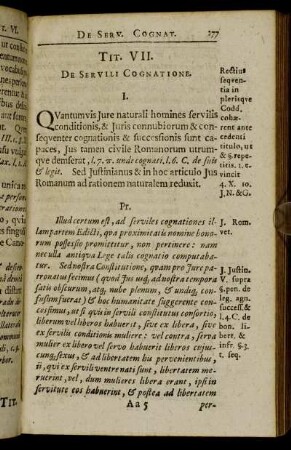 DE SERV. COGNAT. 277
TIT. VII.
DE SERVILI COGNATIONE.
I.
QVantumvis Jure naturali homines servilis
conditionis, & Juris connubiorum & con-
seqventer cognationis & successionis sunt ca-
paces, Jus tamen civile Romanorum utrum-
qve demserat, l. 7. v. unde cognati. l. 6. C. de suis
& legit. Sed Justinianus & in hoc articulo Jus
Romanum ad rationem naturalem reduxit.
Pr.
Illud certum est, ad serviles cognationes il-
lam partem Edicti, qua proximitatis nomine bono-
rum possessio promittitur, non pertinere: nam
nec ulla antiqua Lege talis cognatio computaba-
tur. Sed nostra Constitutione, quam pro Jure pa-
tronatus fecimus (quod jus usq; ad nostra tempora
satis obscurum, atq; nube plenum, & undiq; con-
fusum fuerat) & hoc humanitate suggerente con-
cessimus, ut si qvis in servili constitutus consortio,
liberum vel liberos habuerit, sive ex libera, sive
ex servilis conditionis muliere: vel contra, serva
mulier ex libero vel servo habuerit liberos cujus-
cunq; sexus, & ad libertatem his pervenientibus,
ii, qvi ex servili ventre nati sunt, libertatem me-
ruerint, vel, dum mulieres libera erant, ipsi in
servitute eos habuerint, & postea ad libertatem
Aa 5 per-
Rectius
seqven-
tia in
plerisqve
Codd.
cohæ-
rent ante
cedenti
titulo,
ut & §.
repetitis.
1. e-
vincit
4. X. 10.
J. N. & G.
J. Rom.
vet.
J. Justin.
V. supra
§. pen. de
leg. agn.
success. &
l. 4. C. de
bon.
libert. &
infr. §. 3.
t. seq.
T. VI.
TIT.